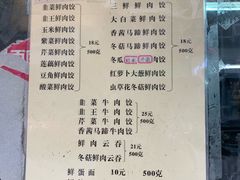 韭菜鲜肉饺
韭王鲜肉饺
玉米鲜肉饺
紫菜鲜肉饺
芹菜鲜肉饺
莲藕鲜肉饺
豆角鲜肉饺
酸菜鲜肉饺
18元
500克
三鲜鲜肉饺
大白菜鲜肉饺
香茜马蹄鲜肉饺
冬菇马蹄鲜肉饺
冬瓜
鲜肉饺
红萝卜大葱鲜肉饺
虫草花冬菇鲜肉饺
18元
500克
韭菜牛肉饺
韭王牛肉饺
芹菜牛肉饺
香茜马蹄牛肉饺
25元
500克
鲜肉云吞
冬菇鲜肉云吞
21元
500克
鲜蛋面 10元 500克